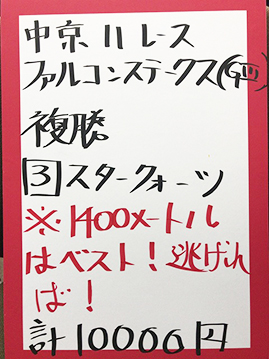 中京11レース
ファルコンステークス(GⅢ)
複勝
3スタークォーツ
※1400メートル
はベスト!逃げれ
ば!
計10000円